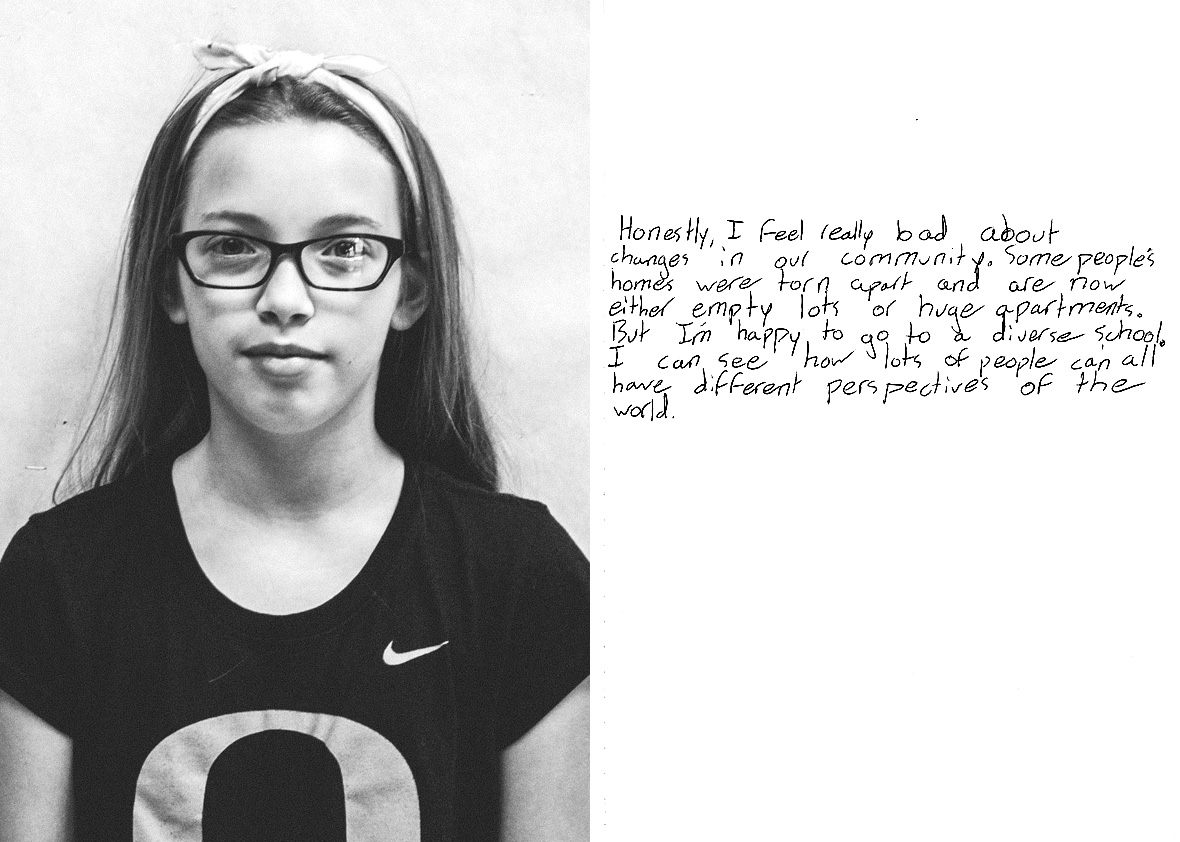 Honestly, I feel really bad about
changes in our community. Some people's
homes were torn apart and are now
either empty lots or huge apartments.
But I'm happy to go to a diverse school.
I can see how lots of people can all
have different perspectives of the
world.